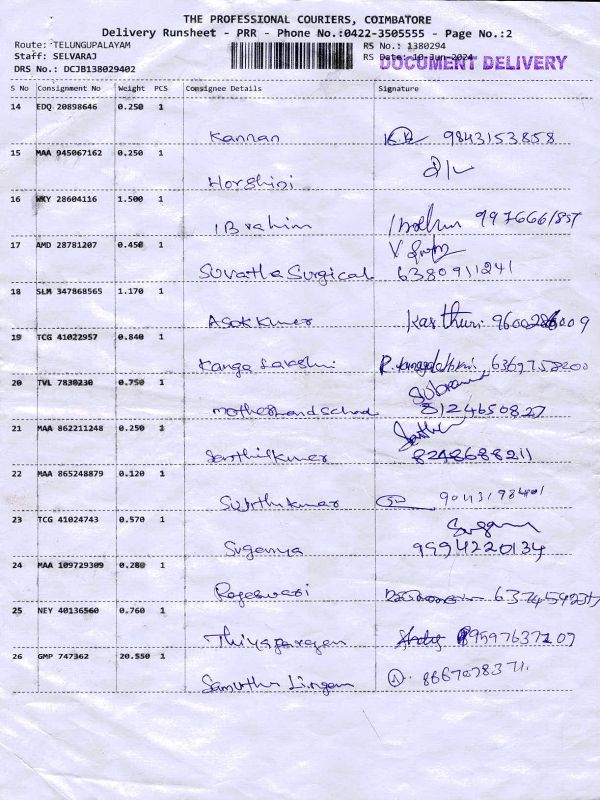 THE PROFESSIONAL COURIERS, COIMBATORE
Delivery Runsheet - PRR - Phone No.:0422-3505555 - Page No.:2
Route: TELUNGUPALAYAM RS No.: 1380294
Staff: SELVARAJ RS Date: 10-Jun-2024 DOCUMENT DELIVERY
DRS No.: DCJB138029402
S No Consignment No Weight PCS Consignee Details Signature
14 EDQ 20898646 0.250 1
Kannan 9843153858
15 MAA 945067162 0.250 1
Horshini
16 WKY 28604116 1.500 1
IBrahim
17 AMD 28781207 0.450 1
Suvatha Surgical 6380911241
18 SLM 347868565 1.170 1
Asok Kumer Kasthuri
19 TCG 41022957 0.840 1
Kanga Lakshmi
20 TVL 7830230 0.750 1
8124650827
21 MAA 862211248 0.250 1
Senthilkumer 8248688211
22 MAA 865248879 0.120 1
23 TCG 41024743 0.570 1
Sugan
Suganya 9994220134
24 MAA 109729309 0.280 1
Rajeswari
25 NEY 40136560 0.760 1
26 GMP 747362 20.550 1
Samuthu Lingam